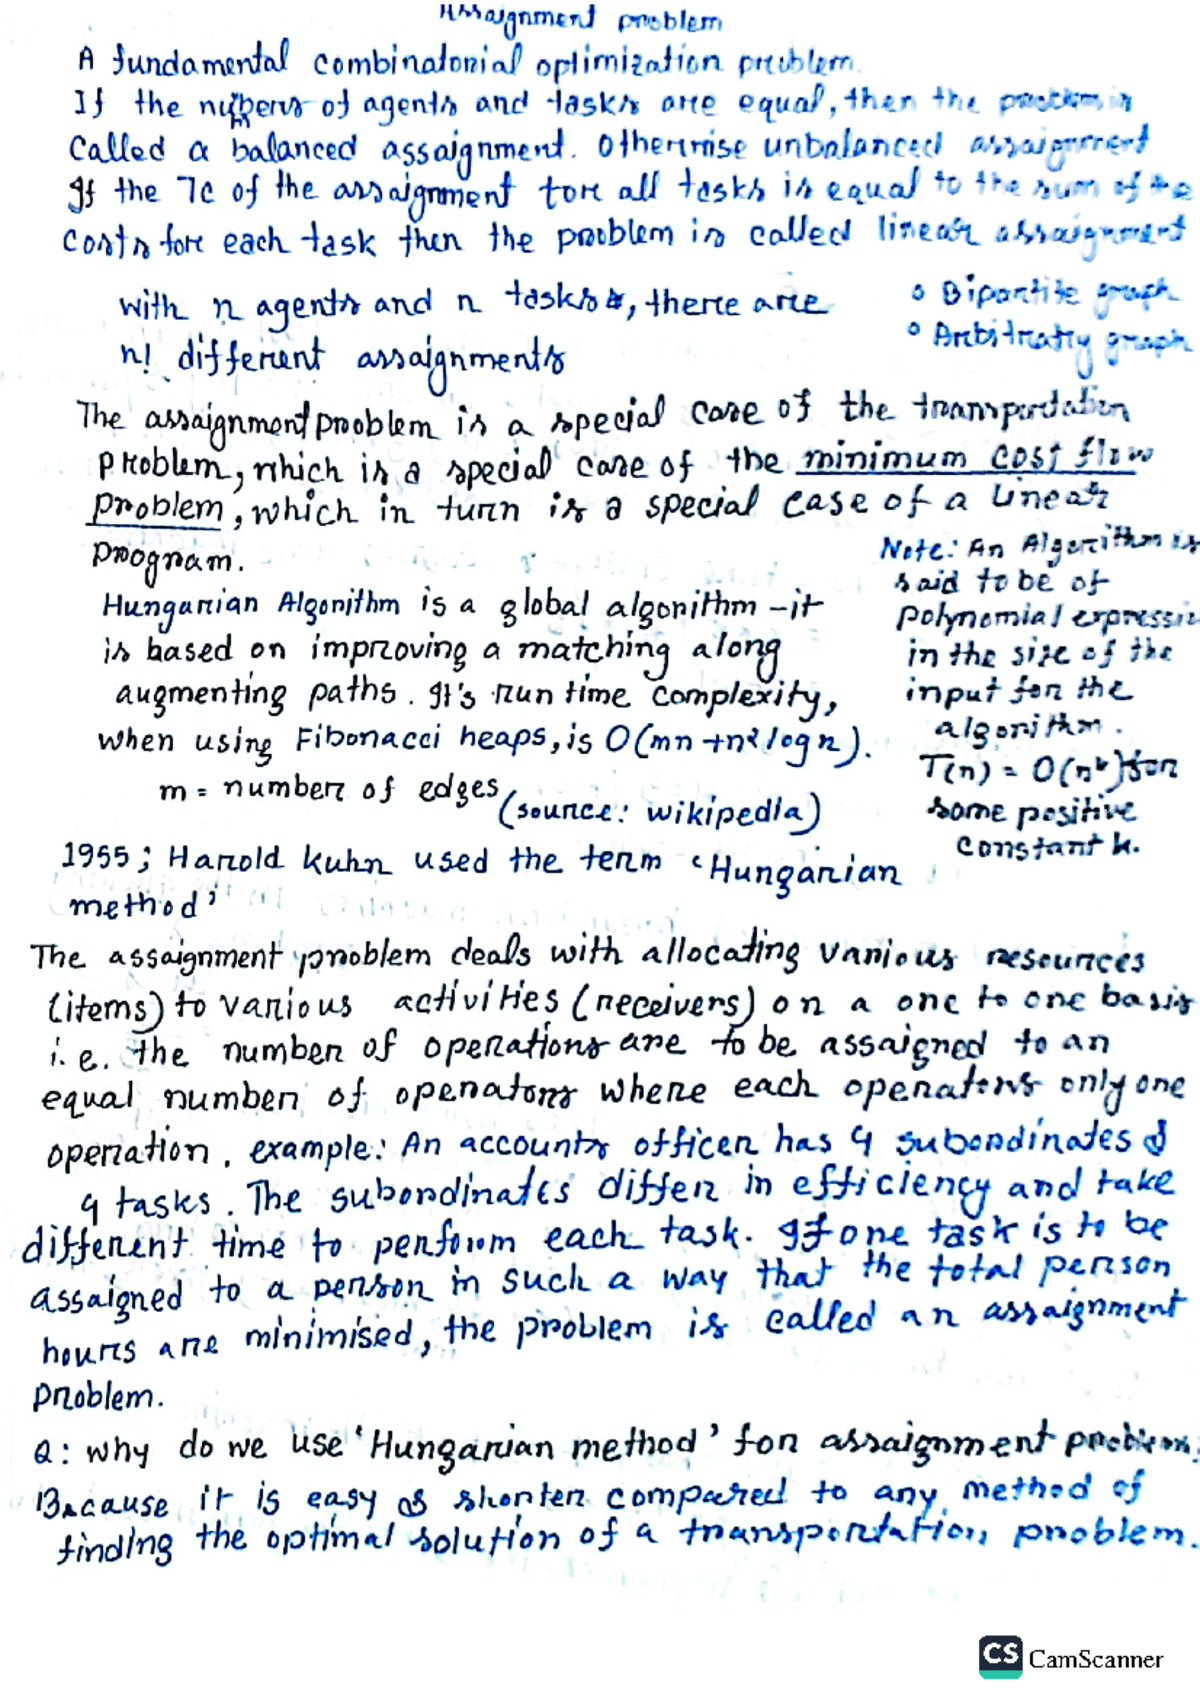 Assaignment problem
A fundamental combinatonial optimization problem.
If the numbers of agents and tasks are equal, then the problem is
Called a balanced assaignment. Otherwise unbalanced assaignment
If the TC of the assaignment for all tasks is equal to the sum of the
Costs for each task then the problem is called linear assaignment
with n agents and n tasks, there are
n! different assaignments
o Bipartite graph
o Arbitrary graph
The assaignment problem is a special case of the transportation
Problem, which is a special case of the minimum cost flow
problem, which in turn is a special case of a Linear
program.
Hungarian Algorithm is a global algorithm - it
is based on improving a matching along
augmenting paths. It's run time complexity,
when using Fibonacci heaps, is O(mn + n² log n).
m = number of edges
(source: wikipedia)
Note: An Algorithm is
said to be of
polynomial
in the size of the
input for the
algorithm.
T(n) = O(n^k) for
some positive
constant k.
1955; Harold kuhn used the term 'Hungarian
method'
The assaignment problem deals with allocating various resources
(items) to various activities (receivers) on a one to one basis
i.e. the number of operations are to be assaigned to an
equal number of operators where each operators only one
operation. example: An accounts officer has 4 subordinates &
4 tasks. The subordinates differ in efficiency and take
different time to perform each task. If one task is to be
assaigned to a person in such a way that the total person
hours are minimised, the problem is called an assaignment
problem.
Q: why do we use 'Hungarian method' for assaignment problem.
Because it is easy & shorter compared to any method of
finding the optimal solution of a transportation problem.
CS CamScanner